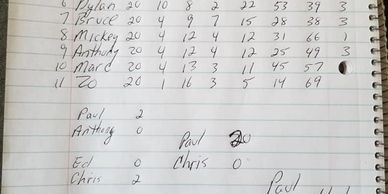 6 Dylan 20 10 8 2 22 53 39 3
7 Bruce 20 4 9 7 15 28 38 3
8 Mickey 20 4 12 4 12 31 66 1
9 Anthony 20 4 12 4 12 25 49 3
10 Marc 20 4 13 3 11 45 57
11 ZO 20 1 16 3 5 14 69
Paul 2
Anthony 0
Paul 20
Chris 0
Ed 0
Chris 2
Paul